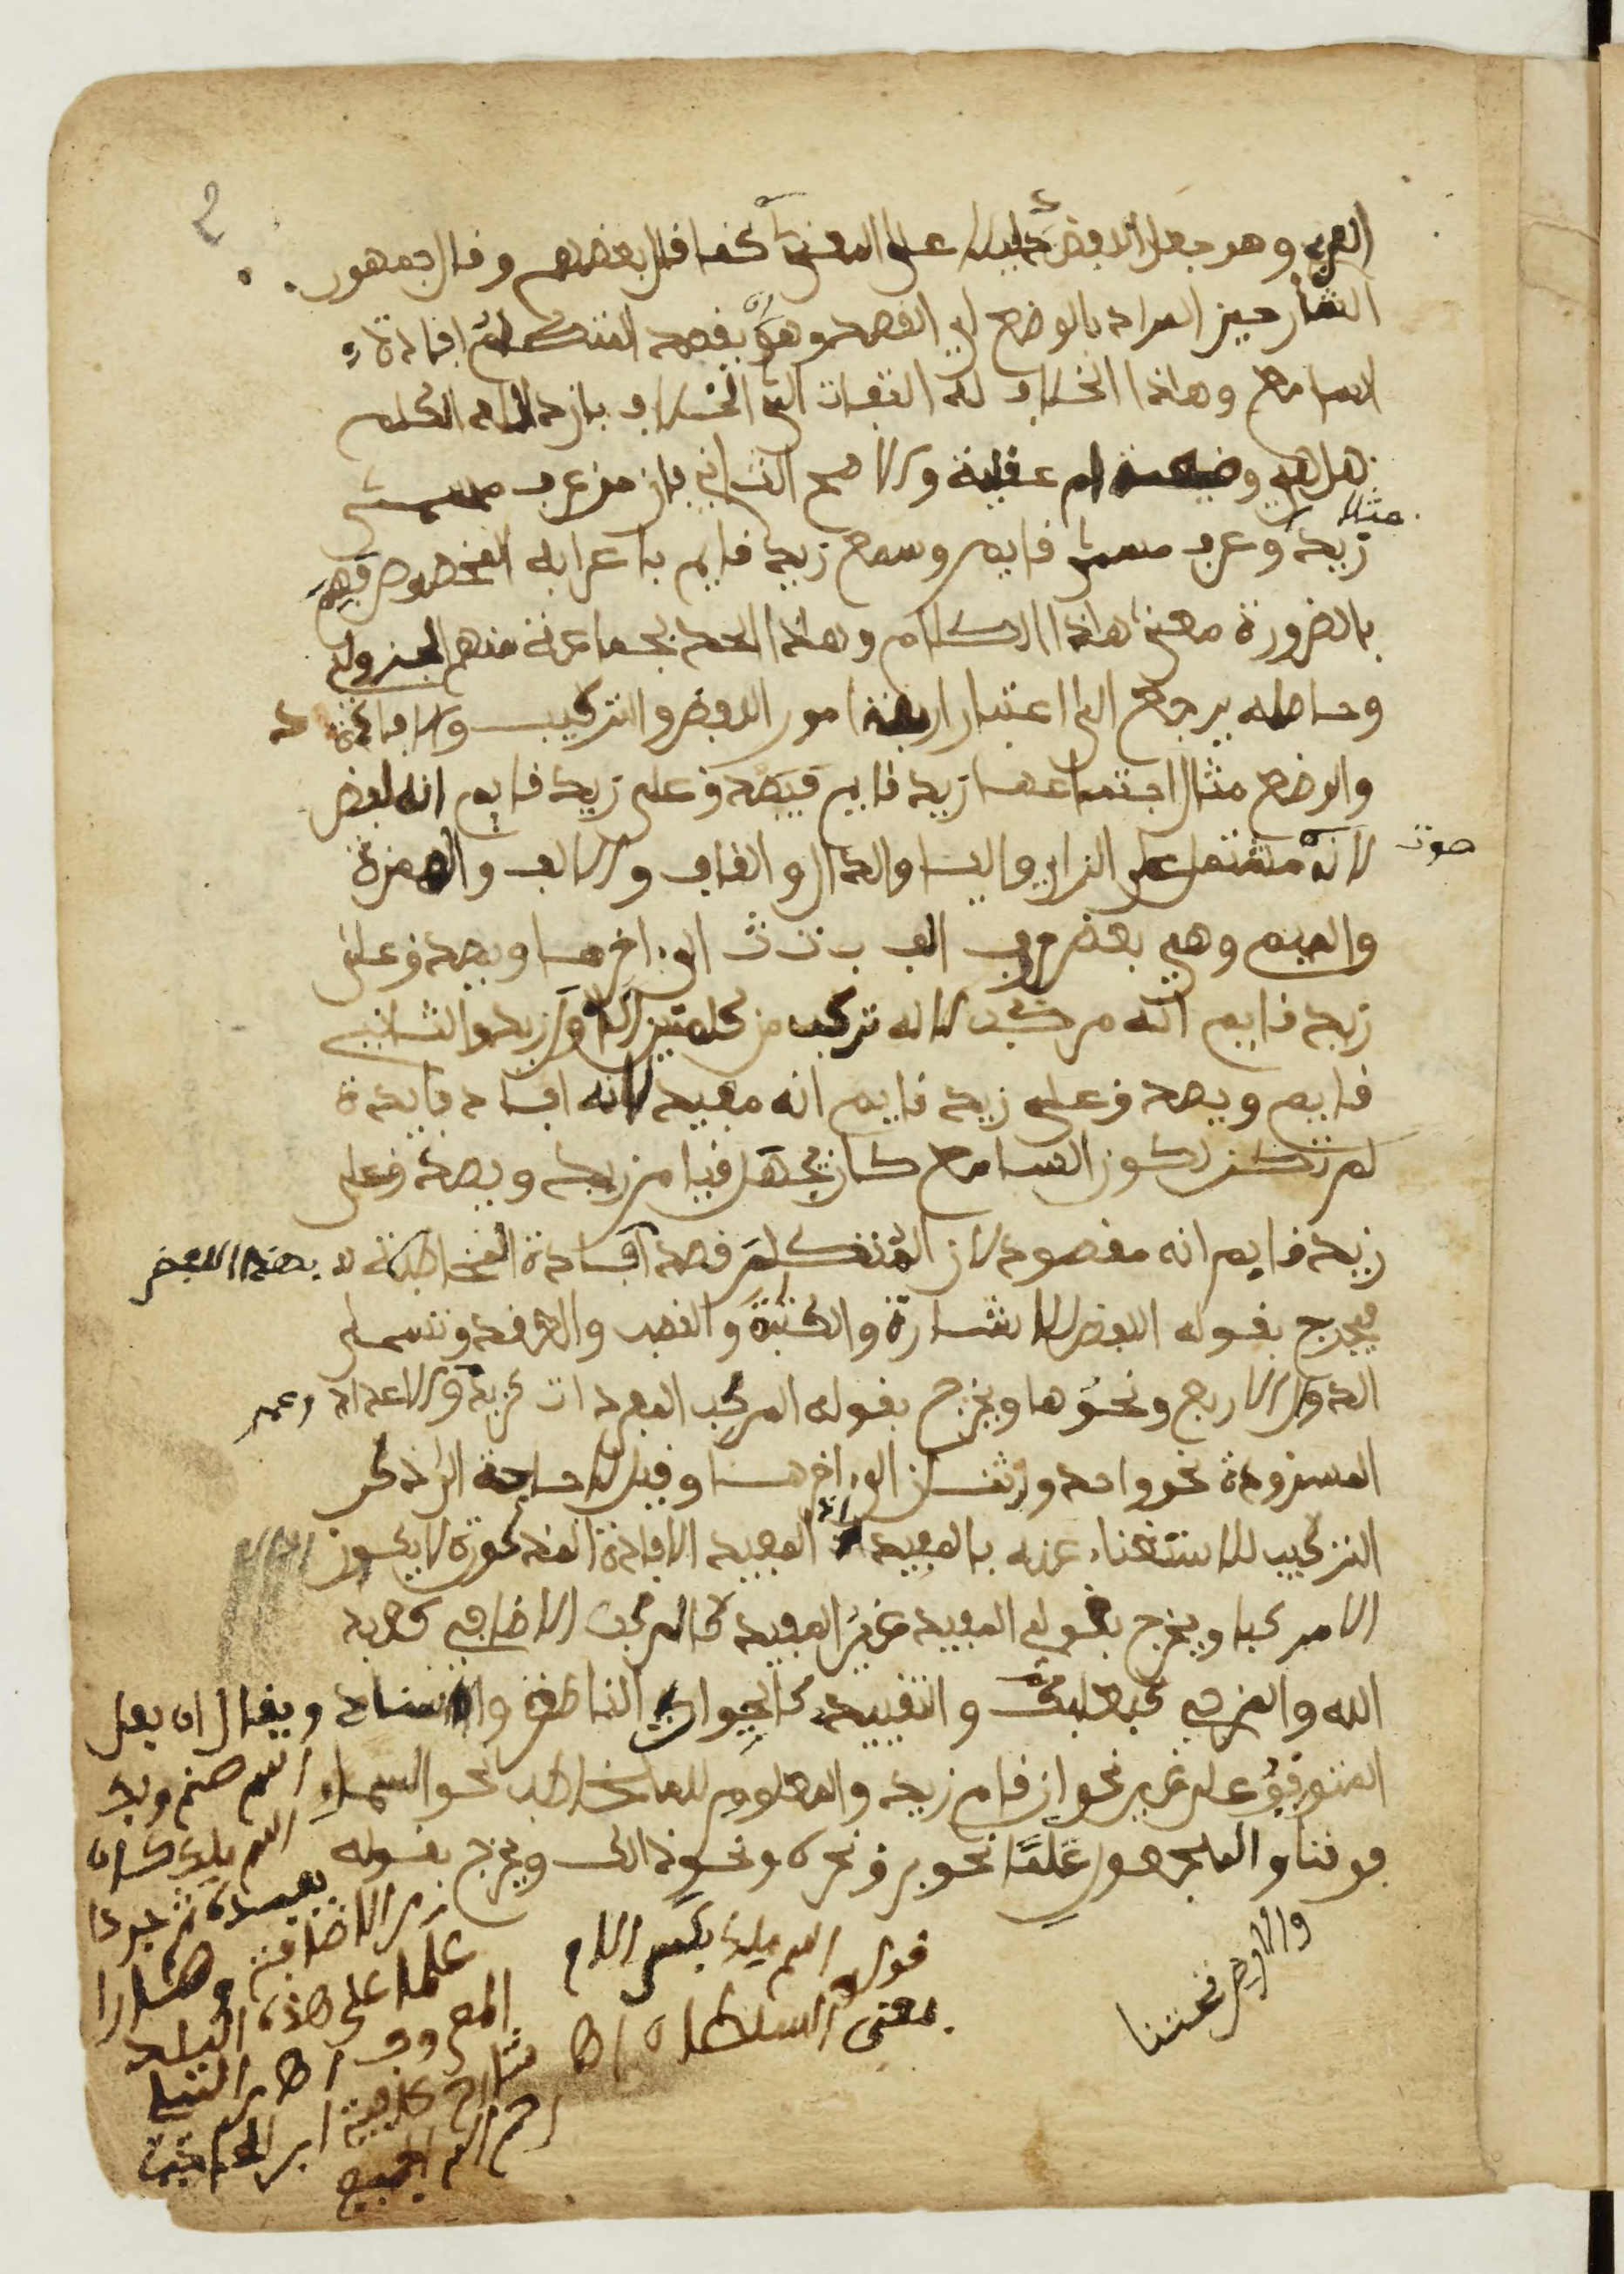 العربي وهو جعل اللفظ دليلا على المعنى كما قال بعضهم وقال جمهور
الشارحين المراد بالوضع اي القصد وهو ان يقصد المتكلم افادة
السامع وهذا الخلاف له التفات الى الخلاف بان دلالة الكلام
هل هي وضعية ام عقلية والاصح الثاني بان من عرف مسمى
زيد مثلا وعرف مسمى قايم وسمع زيد قايم باعرابه المخصوص فهم
بالضرورة معنى هاذا الكلام وهاذا الحد لجماعة منهم الجزولي
وحاصله يرجع الى اعتبار اربعة امور اللفظ والتركيب والافادة
والوضع مثال اجتماعها زيد قايم فيصدق على زيد قايم انه لفظ
لانه صوت مشتمل على الزاي واليا والدال والقاف والالف والهمزة
والميم وهي بعض حروف الف ب ت ث الى اخرها ويصدق على
زيد قايم انه مركب لانه تركب من كلمتين الاول زيد والثاني
قايم ويصدق على زيد قايم انه مفيد لانه افاد فايدة
لم تكن لكون السامع كان يجهل قيام زيد ويصدق على
زيد قايم انه مقصود لان المتكلم قصد افادة المخاطب بهذا اللفظ
فيخرج بقوله اللفظ الاشارة والكتبة والنصب والعقد وتسمى
الدوال الاربع ونحوها ويخرج بقوله المركب المفردات كزيد والاعداد وعمر
المسرودة نحو واحد واثنان الى اخرها وقيل لا حاجة الى ذكر
التركيب للاستغناء عنه بالمفيد اذ المفيد الافادة المذكورة لا يكون
الا مركبا ويخرج بقوله المفيد غير المفيد كالمركب الاضافي كعبد
الله والمزجي كبعلبك والتقييدي كالحيوان الناطق والاسناد ويقال ان بعل
المتوقف على غيره نحو ان قام زيد والمعلوم للمخاطب نحو السماء اسم صنم وبك
فوقنا والمجهول علما نحو برق نحره ونحو ذالك ويخرج بقوله اسم ملك كان
والارض تحتنا
قوله اسم ملك بكسر اللام
بمعنى السلطان اهـ
يعبده ثم جردا
من الاضافة وصارا
علما على هذه البلد
المعروف اهـ
شارح كافية ابن الحاجب
رحم الله الجميع